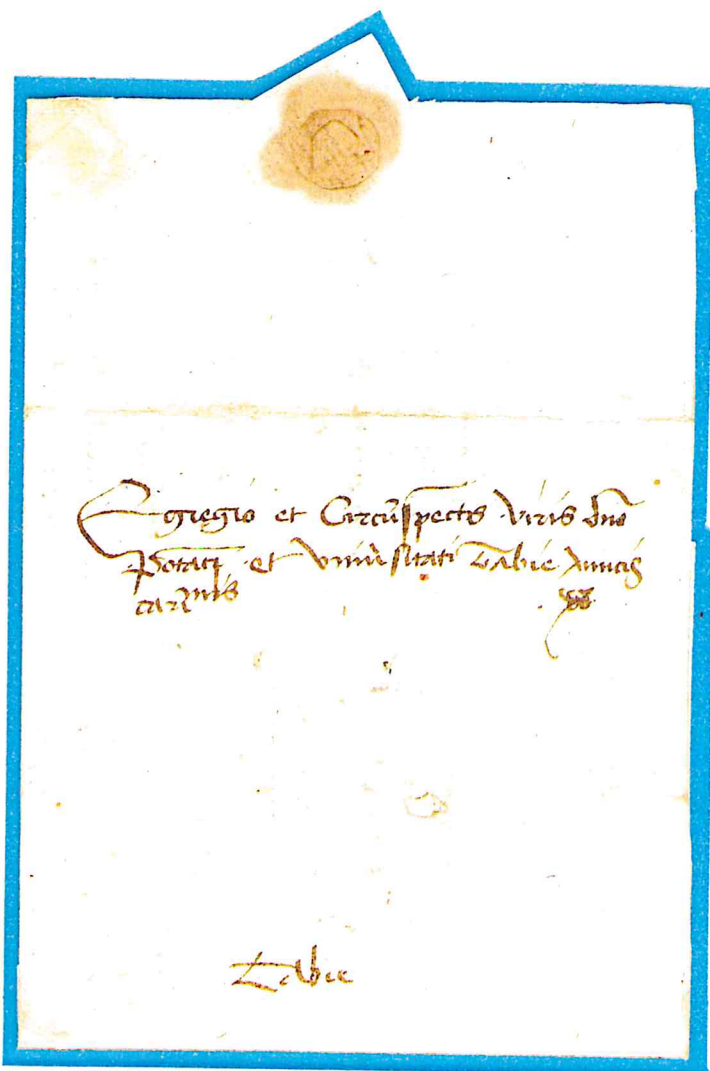 Egregio et Circūspectis viris dño
Potati et Universitati Tabie Amicis
carmis
Tabie